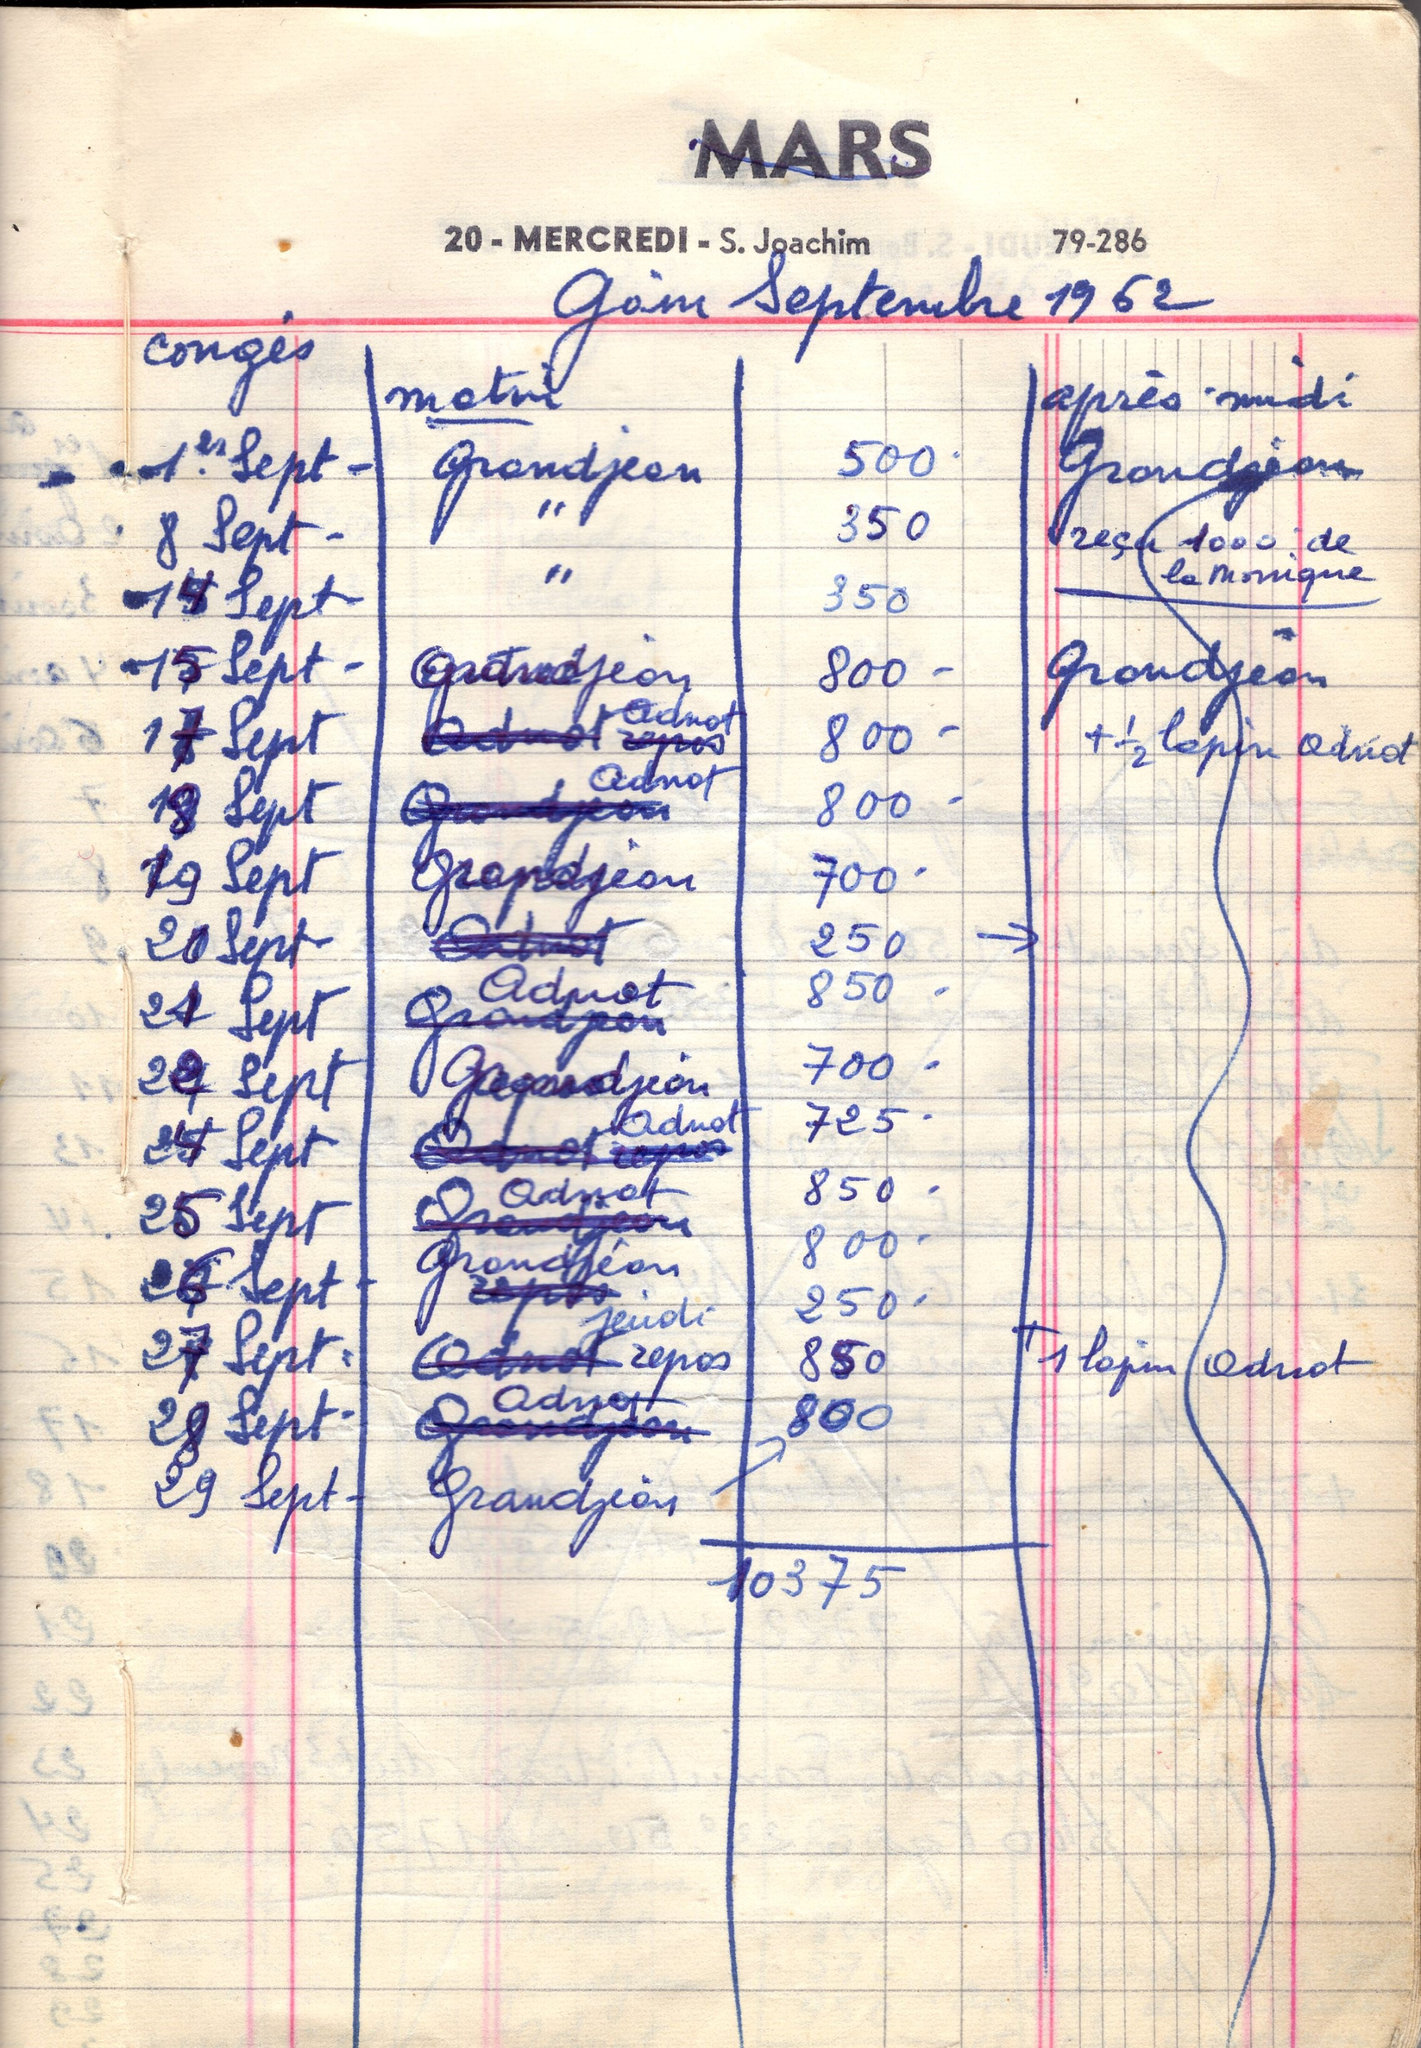 MARS
20 - MERCREDI - S. Joachim 79-286
Gain Septembre 1962
congés
matin après-midi
1er Sept - Grandjean 500 Grandjean
8 Sept - " 350 reçu 1000 de
la Monique
14 Sept - " 350
15 Sept - Grandjean 800 - Grandjean
17 Sept Adnot Adnot repos 800 - + 1/2 lapin Adnot
18 Sept Adnot Grandjean 800 -
19 Sept Grandjean 700
20 Sept - Adnot 250 →
21 Sept Adnot Grandjean 850
22 Sept Grandjean 700
24 Sept Adnot Adnot repos 725
25 Sept Adnot Grandjean 850
26 Sept - Grandjean repos 800
250
27 Sept Adnot jeudi repos 850 + 1 lapin Adnot
28 Sept - Adnot Grandjean 800
29 Sept - Grandjean
10375